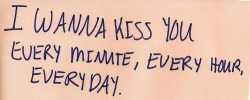 I WANNA KISS YOU
EVERY MINUTE, EVERY HOUR,
EVERYDAY.